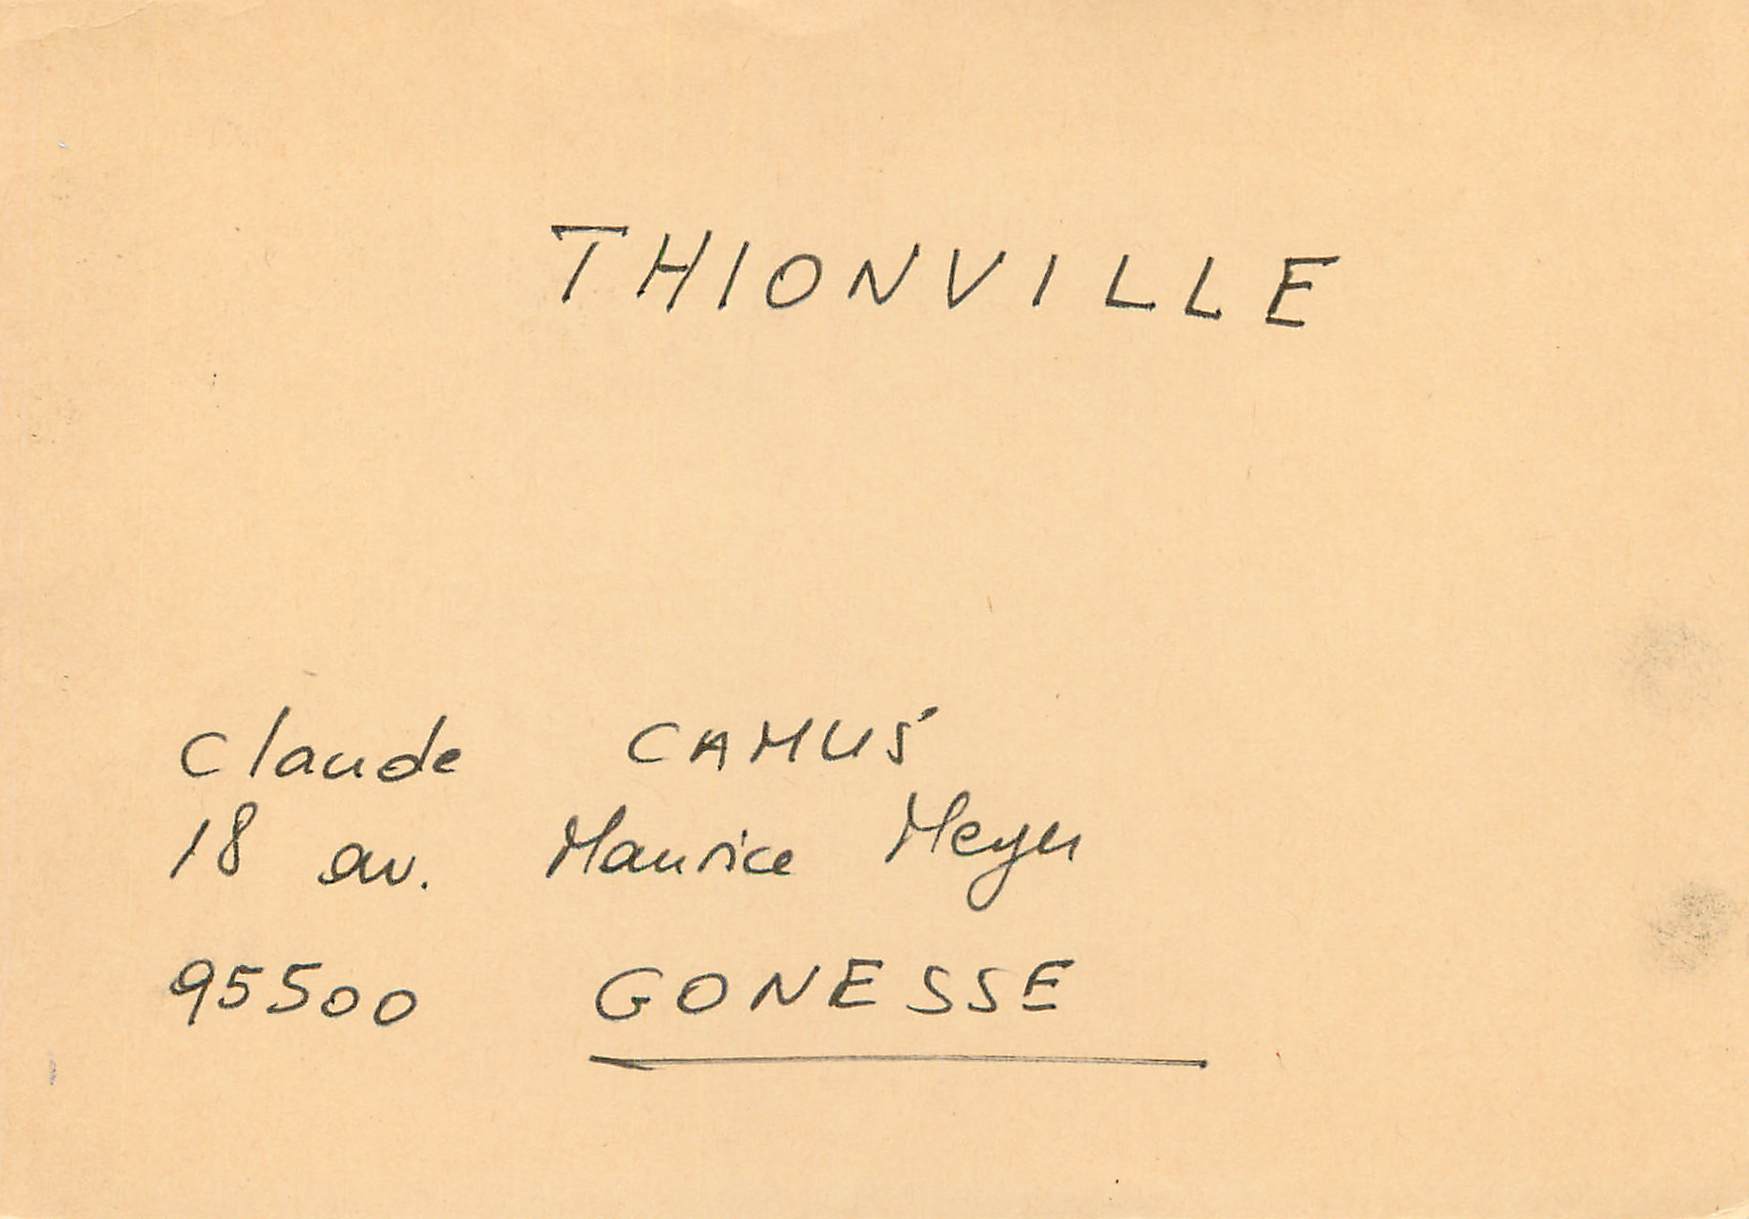 THIONVILLE
Claude CAMUS
18 av. Maurice Meyer
95500 GONESSE